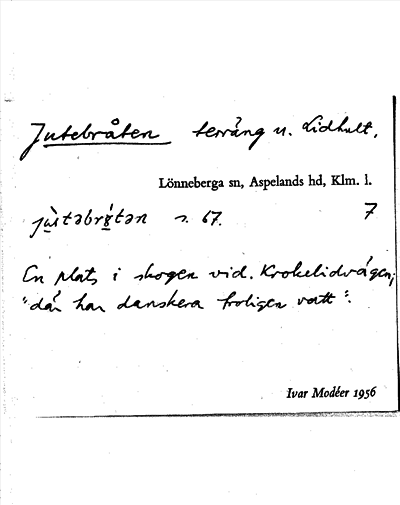 Jutebråten terräng u. Lidhult.
Lönneberga sn, Aspelands hd, Klm. l.
jùtəbrǿtən s. 67. 7
En plats i skogen vid Krokelidvägen;
"där har danskera troligen vatt".
Ivar Modéer 1956